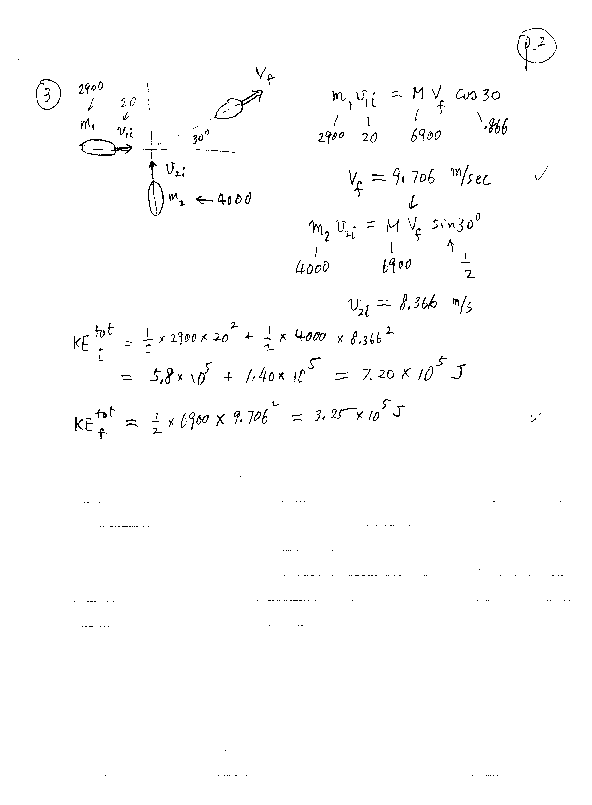 p.2
3
2900
20
m₁ v₁ᵢ
V_f
30⁰
v₂ᵢ
m₂ ← 4000
m₁ v₁ᵢ = M V_f cos 30
2900 20 6900 .866
V_f = 9.706 m/sec ✓
m₂ v₂ᵢ = M V_f sin 30⁰
4000 6900 1/2
v₂ᵢ = 8.366 m/s
KEᵢ^tot = 1/2 × 2900 × 20² + 1/2 × 4000 × 8.366²
= 5.8 × 10⁵ + 1.40 × 10⁵ = 7.20 × 10⁵ J
KE_f^tot = 1/2 × 6900 × 9.706² = 3.25 × 10⁵ J ✓